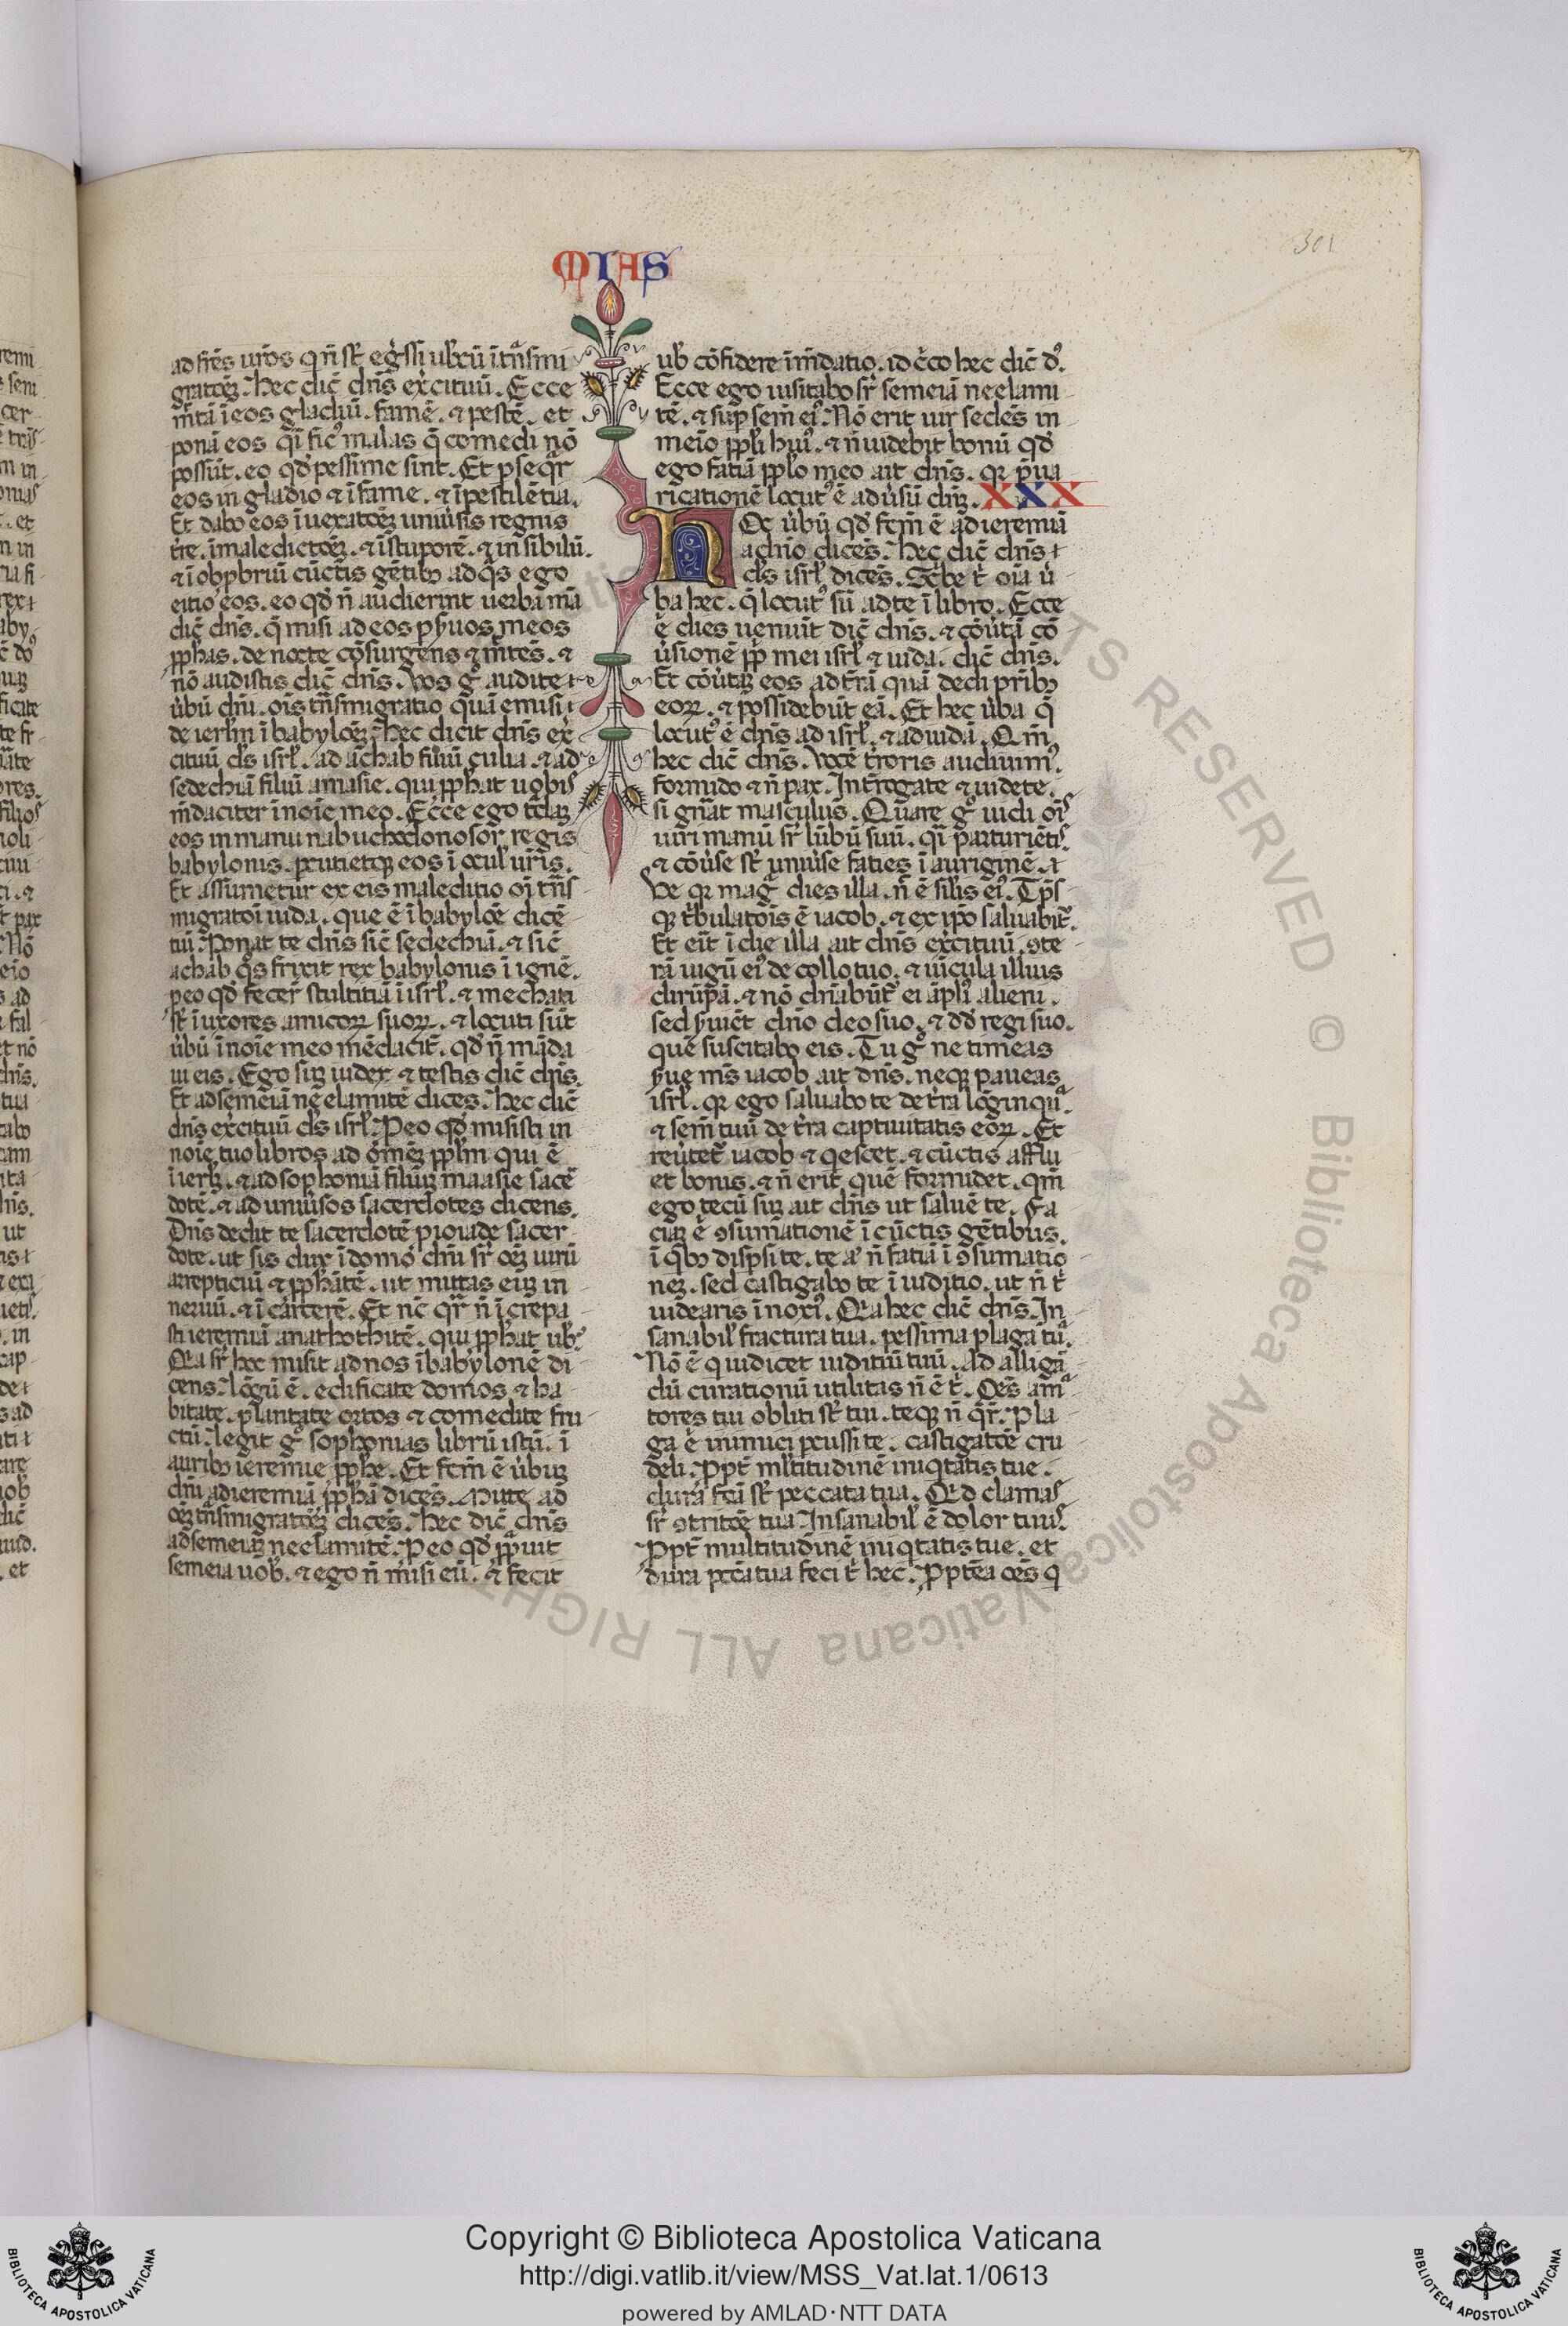 301
MIAS
ad fr̄es ur̄os q nō sr̄ egr̄ssi ub̄cū i tn̄smi
gratōeʒ. hec dic̄ dn̄s exercituū. Ecce
mit̄tā i eos gladiū. famē. ⁊ pestē. et
ponā eos q̄i fic' malas q̄ comedi nō
possūt. eo qd̄ pessime sint. Et p̄seq̄r
eos in gladio ⁊ i fame. ⁊ i pestilētia.
Et dabo eos i uexatōeʒ uniūsis regnis
tr̄e. i maledictōeʒ. ⁊ i stuporē. ⁊ in sibilū.
⁊ i obpbriū cūctis gētibꝰ ad q̄s ego
eitio eos. eo qd̄ n̄ audierint uerba mā
dic̄ dn̄s. q̄ misi ad eos p ẜuos meos
pphas. de nocte cōsurgens ⁊ mit̄tēs. ⁊
nō audistis dic̄ dn̄s. Vos gͦ audite
ūbū dn̄i. ois tn̄smigratio quā emisi
de ierl̄m i babyloeʒ. hec dicit dn̄s exer
cituū ds̄ isrl̄. ad achab filiū culia. ⁊ ad
sedechiā filiū amasie. qui pphat uobis
mēdaciter i noīe meo. Ecce ego tdaʒ
eos in manu nabuchodonosor regis
babylonis. pcutietqꝫ eos i ocul' ur̄is.
Et assumetur ex eis maleditio oi tn̄s
migratoi iuda. que ē i babyloē dicē
tiū. Ponat te dn̄s sic̄ sedechiā. ⁊ sic̄
achab q̄s frixit rex babylonis i ignē.
peo qd̄ fecer̄ stultitiā i isrl̄. ⁊ mechati
st̄ i uxores amicoꝝ suoꝝ. ⁊ locuti sūt
ūbū i noīe meo mēdacit̄. qd̄ n̄ māda
ui eis. Ego suʒ iudex ⁊ testis dic̄ dn̄s.
Et ad semeiā neelamitē dices. hec dic̄
dn̄s exercituū ds̄ isrl̄. Peo qd̄ misisti in
noīe tuo libros ad omēʒ pplm qui ē
i ierlʒ. ⁊ ad sophoniā filiuʒ maasie sacē
dotē. ⁊ ad uniūsos sacerdotes dicens.
Dn̄s dedit te sacerdotē p ioiade sacer
dote. ut sis dux i domo dn̄i sr̄ oēʒ uirū
arrepticiū ⁊ pphātē. ut mittas euʒ in
neruū. ⁊ i carcerē. Et nc̄ qr̄ n̄ icrepa
sti ieremiā anathothitē. qui pphat ub̄.
Q̄a sr̄ hec misit ad nos i babylonē di
cens. lōgū ē. edificate domos ⁊ ha
bitate. plantate ortos ⁊ comedite fru
ctū. legit gͦ sophonias librū istū. i
auribꝰ ieremie pphe. Et fcm̄ ē ūbuʒ
dn̄i ad ieremiā pphā dicēs. Mitte ad
oēʒ tn̄smigratōeʒ dicēs. hec dic̄ dn̄s
ad semeiaʒ neelamitē. Peo qd̄ pphauit
semeia uob̄. ⁊ ego n̄ misi eū. ⁊ fecit
ub̄ cōfidere i mēdatio. id c̄co hec dic̄ dꝰ.
Ecce ego uisitabo sr̄ semeiā neelami
tē. ⁊ sup sem̄ eiꝰ. Nō erit uir sedēs in
meīo ppl̄i huiꝰ. ⁊ n̄ uidebit bonū qd̄
ego fatiā pplo meo ait dn̄s. qꝛ p̄ua
ricationē locutꝰ ē adūsū dn̄ʒ. XXX
hOC ūbū qd̄ fcm̄ ē ad ieremiā
a dn̄o dicēs. hec dic̄ dn̄s
ds̄ isrl̄ dicēs. Sc̄be t̄ oīa ū
ba hec. q̄ locutꝰ sū ad te i libro. Ecce
ē dies ueniūt dic̄ dn̄s. ⁊ cōūtā cō
ūsionē pp̄ mei isrl̄ ⁊ iuda. dic̄ dn̄s.
Et cōūtaʒ eos ad tr̄ā quā dedi pr̄ibꝰ
eoꝝ. ⁊ possidebūt eā. Et hec ūba q̄
locutꝰ ē dn̄s ad isrl̄. ⁊ ad iudā. Qm̄
hec dic̄ dn̄s. Vocē tr̄oris audiuimꝰ.
formido ⁊ n̄ pax. Intr̄ogate ⁊ uidete.
si gn̄at masculus. Quare gͦ uidi ois
uiri manū sr̄ lūbū suū. q̄i parturiētis.
⁊ cōūse st̄ uniūse faties i auriginē.
Ve qꝛ mag̃ dies illa. n̄ ē sil̄is eiꝰ. Tp̄s
qꝫ tr̄bulatois ē iacob. ⁊ ex ip̄o saluabit̄.
Et eīt i die illa ait dn̄s exercituū. ꝯte
rā iugū eiꝰ de collo tuo. ⁊ uīcula illius
dirūpā. ⁊ nō dn̄abūt̄ ei āpliꝰ alieni.
sed ẜuiēt dn̄o deo suo. ⁊ dd̄ regi suo.
quē suscitabo eis. Tu gͦ ne timeas
ẜue m̄s iacob ait dn̄s. neqꝫ paueas
isrl̄. qꝛ ego saluabo te de tr̄ra lōginqua.
⁊ sem̄ tuū de tr̄ra captiuitatis eoꝝ. Et
reūtet̄ iacob ⁊ qescet. ⁊ cūctis afflu
et bonis. ⁊ n̄ erit quē formidet. qm̄
ego tecū suʒ ait dn̄s ut saluē te. Fa
ciaʒ ē ꝯsumationē i cūctis gētibus.
i qbꝰ dispsi te. te aͣ n̄ fatiā i ꝯsumatio
neʒ. sed castigabo te i iuditio. ut n̄ t̄
uidearis i noxiꝰ. Q̄a hec dic̄ dn̄s. In
sanabil' fractura tua. pessima plaga tua.
Nō ē qui dicet iuditiū tuū. Ad alligā
dū curationū utilitas n̄ ē t̄. Oēs ama
tores tui obliti st̄ tui. teqꝫ n̄ qr̄. Pla
ga ē inimici pcussi te. castigatōe cru
deli. Ppt̄ ml̄titudinē iniqtatis tue.
dura fcā st̄ peccata tua. Qd clamas
sr̄ ꝯtritōe tua. Insanabil' ē dolor tuus.
Ppt̄ multitudinē iniqtatis tue. et
dura pctā tua feci t̄ hec. Pptēa oēs q
Copyright © Biblioteca Apostolica Vaticana
http://digi.vatlib.it/view/MSS_Vat.lat.1/0613
powered by AMLAD·NTT DATA
BIBLIOTECA APOSTOLICA VATICANA
BIBLIOTECA APOSTOLICA VATICANA
© Biblioteca Apostolica Vaticana ALL RIGHTS RESERVED